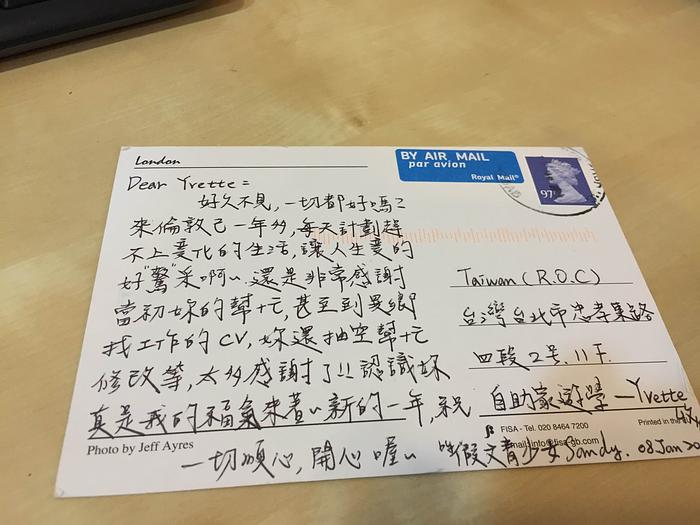 London
BY AIR MAIL
par avion
Royal Mail
97
Dear Yvette:
好久不見,一切都好嗎?
來倫敦已一年多,每天計劃趕
不上變化的生活,讓人生變的
好"驚"采啊~ 還是非常感謝
當初妳的幫忙,甚至到曼徹
找工作的CV,妳還抽空幫忙
修改等,太多感謝了!! 認識妳
真是我的福氣來著~ 新的一年,祝
一切順心,開心喔~
Taiwan (R.O.C)
台灣台北市忠孝東路
四段2号.11F.
自助家遊學-Yvette
Photo by Jeff Ayres
FISA - Tel. 020 8464 7200
Email: info@fisa-gb.com
Printed in the
假文青少女Sandy. 08 Jan 20